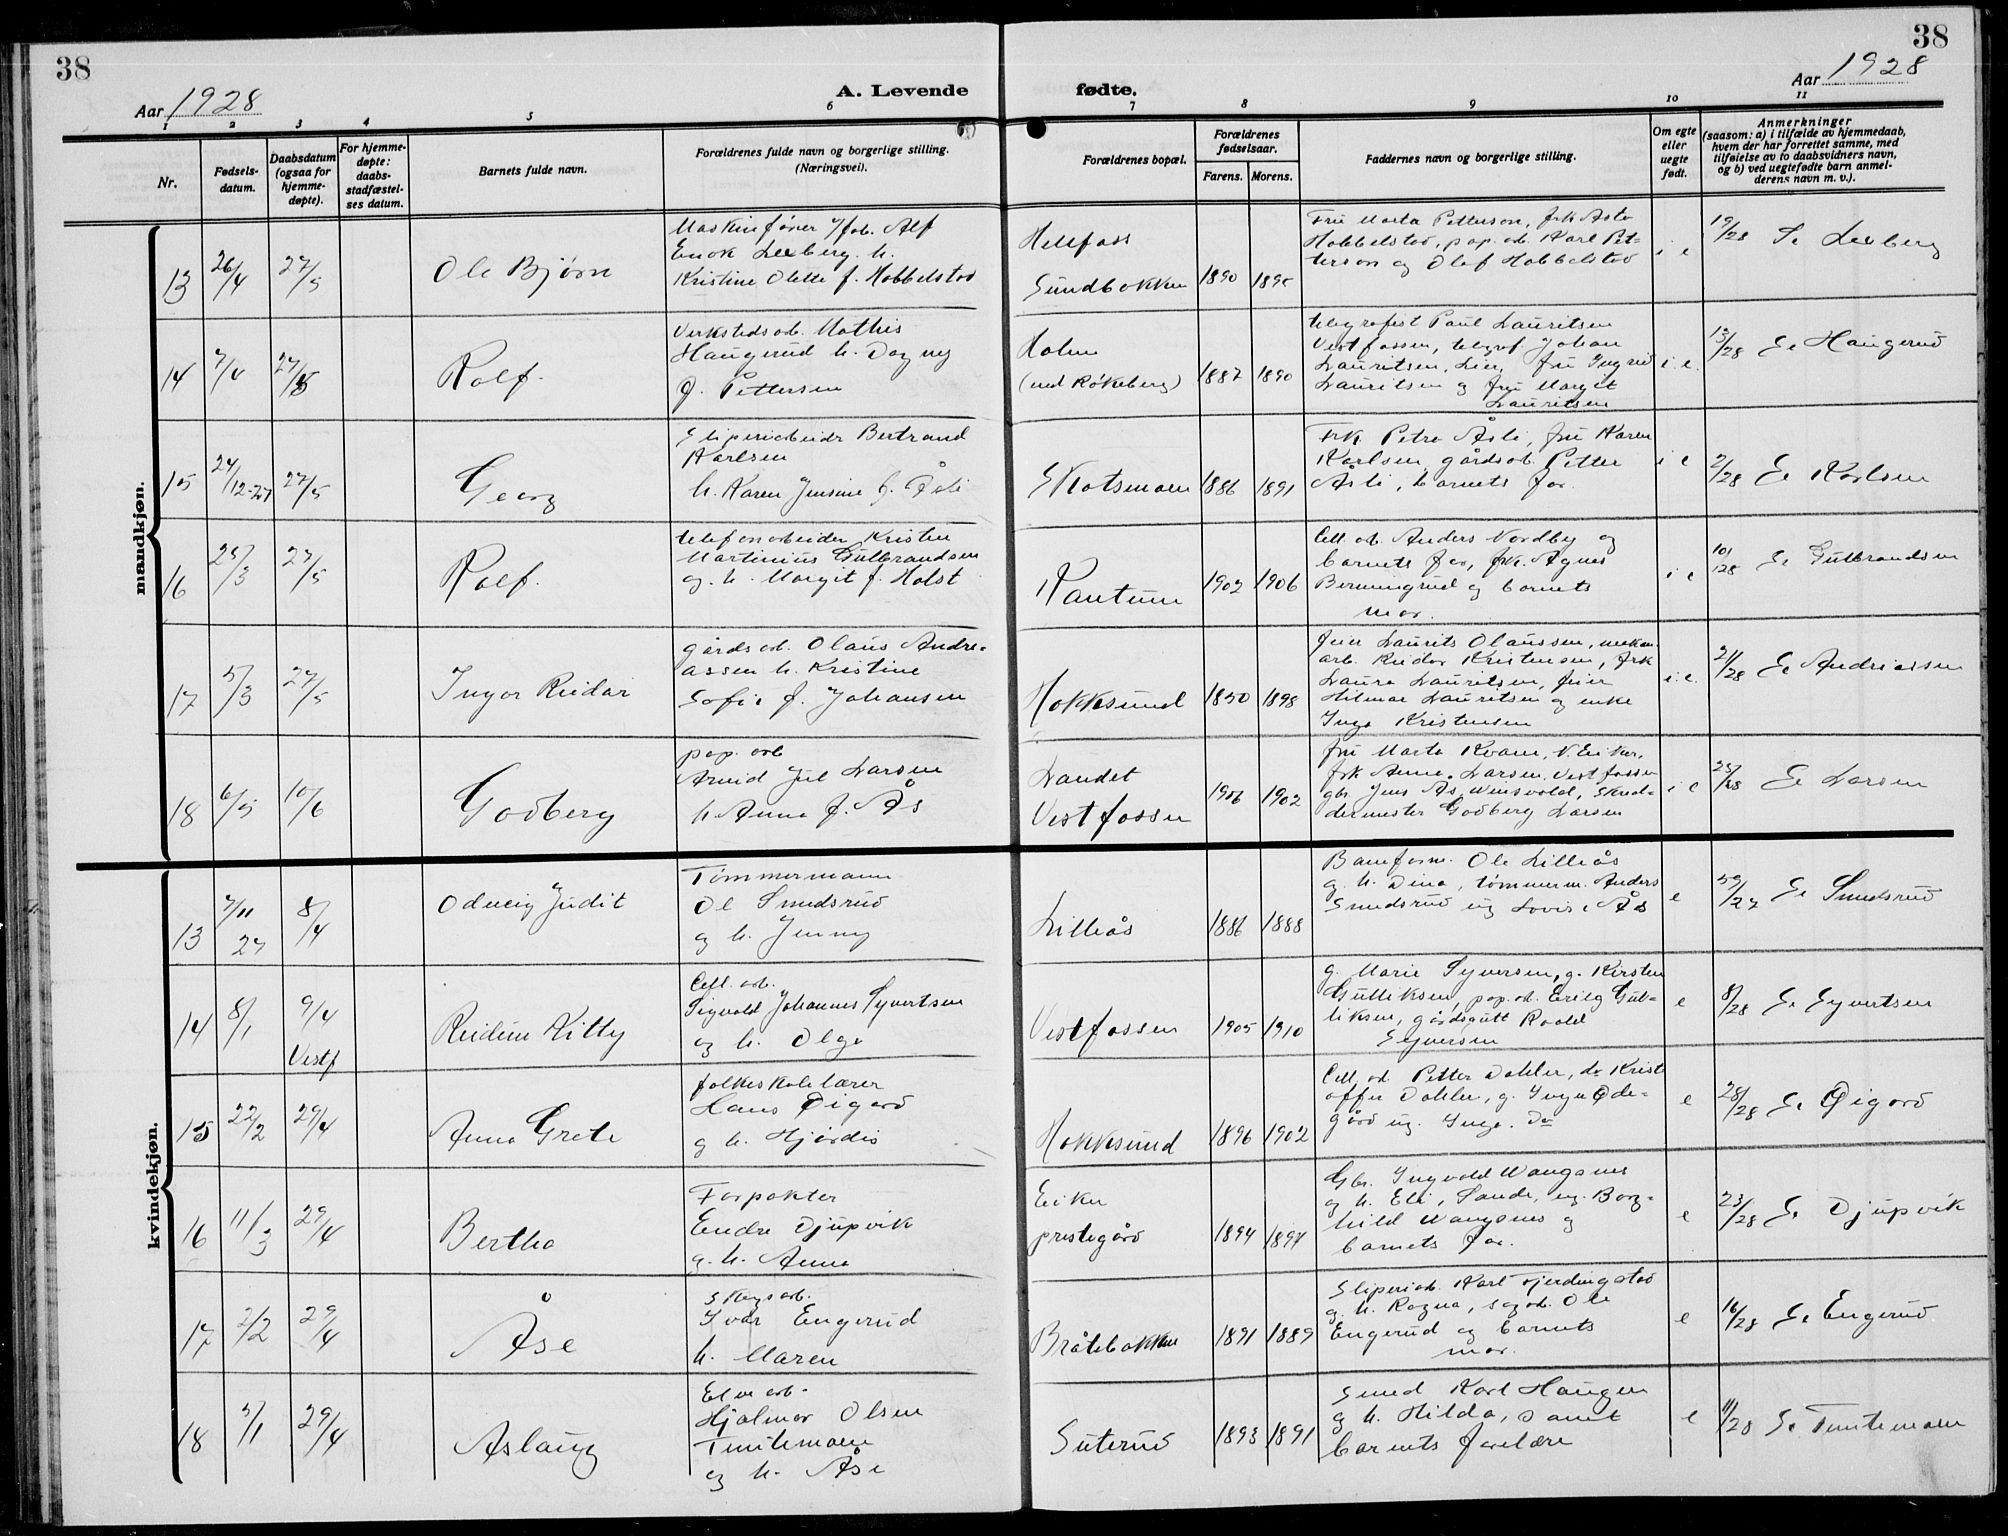 38
38
Aar 1928
A. Levende
fødte.
Aar 1928
1 2 3 4 5 6 7 8 9 10 11
Nr.
Fødsels-
datum.
Daabsdatum
(ogsaa for
hjemme-
døpte).
For hjemme-
døpte:
daabs-
stadfæstel-
ses datum.
Barnets fulde navn.
Forældrenes fulde navn og borgerlige stilling.
(Næringsvei).
Forældrenes bopæl.
Forældrenes
fødselsaar.
Farens. Morens.
Faddernes navn og borgerlige stilling.
Om egte
eller
uegte
født.
Anmerkninger
(saasom: a) i tilfælde av hjemmedaab,
hvem der har forrettet samme, med
tilføielse av to daabsvidners navn,
og b) ved uegtefødte barn anmel-
derens navn m. v.).
mandkjøn.
13
26/4
27/5
Ole Bjørn
Maskinfører Alf
Enok Lexberg h.
Kristine Olette f. Hobbelstad
Hellefoss
Sundbakken
1890
Fru Marta Petterson, frk Asta
Hobbelstad, pap. arb. Karl Pet-
terson og Olaf Hobbelstad
19/28 Se Lexberg
14
7/4
Rolf.
Verkstedsarb. Mathis
Haugerud h. Dagny
f. Pettersen
Holm
(ved Røkeberg)
1887 1890
telegrafist Paul Lauritsen
Vestfossen, telegraf. Johan
Lauritsen, Lier, fru Ingrid
Lauritsen og fru Margit
Lauritsen
i. e.
13/28 Se Haugerud
15
24/12-27
27/5
Georg
Sliperiarbeider Bertrand
Karlsen
h. Karen Jensine f. Åsli
Skotsmoen
1886 1891
Frk Petra Åsli, fru Karen
Karlsen, gårdsarb. Petter
Åsli, barnets far.
i e
2/28 Se Karlsen
16
25/3
27/5
Rolf.
telefonarbeider Kristen
Martinius Gulbrandsen
og h. Margit f. Holst
Rantum
1902 1906
Cell. arb. Anders Nordby og
barnets far, frk. Agnes
Berningrud og barnets
mor.
i e
10/28 Se Gulbrandsen
17
5/3
27/5
Ingar Reidar
gårdsarb. Olaus Andre-
assen h. Kristine
Sofie f. Johansen
Hokksund
1850 1898
Laurits Olaussen, mekan
arb. Reidar Kristensen, frk
Laura Lauritsen,
Hilmar Lauritsen og enke
Inga Kristensen
i. e.
21/28 Se Andreassen
18
6/5
10/6
Godberg
pap. arb
Arvid Jul Larsen
h. Anna f. Ås
Landet
Vestfossen
1906 1902
fru Marta Kvam, N. Eiker,
frk Anna Larsen, Vestfossen
gbr Jens Ås, Skred-
dermester Godberg Larsen
i e
25/28 Se Larsen
kvindekjøn.
13
7/11
27
8/4
Odveig Judit
Tømmermann
Ol Smedsrud
og h. Jenny
Lilleås
1886 1888
Baneform. Ole Lilleås
g. h. Dina, tømmerm. Anders
Smedsrud ug Lovise Ås
e
59/27 Se Smedsrud
14
8/1
9/4
Vestf
Reidun Kitty
Cell. arb.
Sigvald Johannes Syvertsen
og h. Olga
Vestfossen
1905 1910
g. Marie Syversen, g. Kirsten
Gulliksen, pap. arb. Erling Gul-
liksen, gårdsgutt Roald
Syversen
e
8/28 Se Syvertsen
15
22/2
29/4
Anna Grete
folkeskolelærer
Hans Øigard
g h. Hjørdis
Hokksund
1896 1902
Cell. arb Petter Dahler, do Krist
offer Dahler, g. Inga Øde-
gård ug. Inga. Do
e
28/28 Se Øigard
16
11/3
29/4
Bertha
Forpakter
Endre Djupvik
g. h. Anna
Eiker
prestegård
1894 1897
Gbr. Ingvald Wangsnes
og h. Eli, Sande, ug. Borg-
hild Wangsnes og
barnets far.
e
23/28 Se Djupvik
17
2/2
29/4
Åse
Skogsarb.
Ivar Engerud
h. Maren
Bråtebakken
1891 1889
Sliperiarb. Karl Tjerdingstad
g. h. Ragna, sagarb. Ole
Engerud og barnets
mor.
e
16/28 Se Engerud
18
5/1
29/4
Aslaug
Elvearb.
Hjalmar Olsen
Tuntemoen
og h. Åse
Suterud
1893 1891
Smed Karl Haugen
g h. Hilda, samt
barnets foreldre
e
11/28 Se Tuntemoen